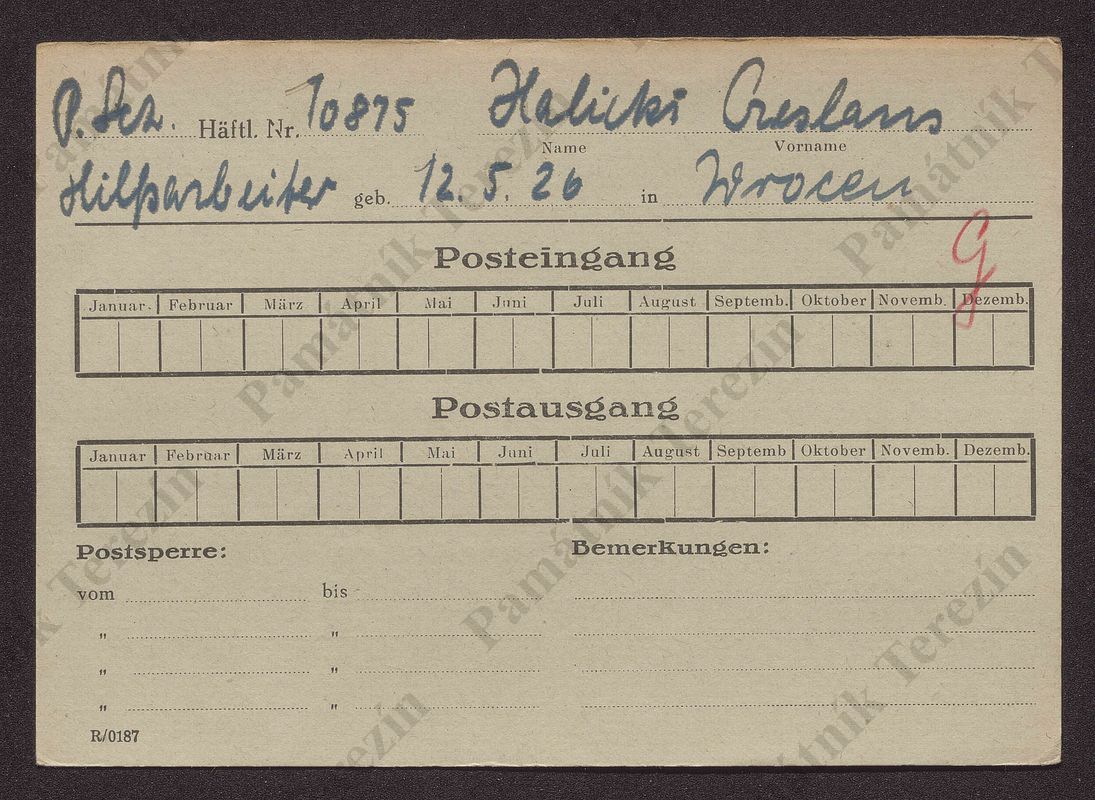 P. Sch. Häftl. Nr. 10875 Halicki Creslaus
Name Vorname
Hilfsarbeiter geb. 12.5.26 in Wrocen
Posteingang
Januar. Februar März April Mai Juni Juli August Septemb. Oktober Novemb. Dezemb.
G
Postausgang
Januar Februar März April Mai Juni Juli August Septemb Oktober Novemb. Dezemb.
Postsperre: Bemerkungen:
vom bis
" "
" "
" "
R/0187
Památník Terezín